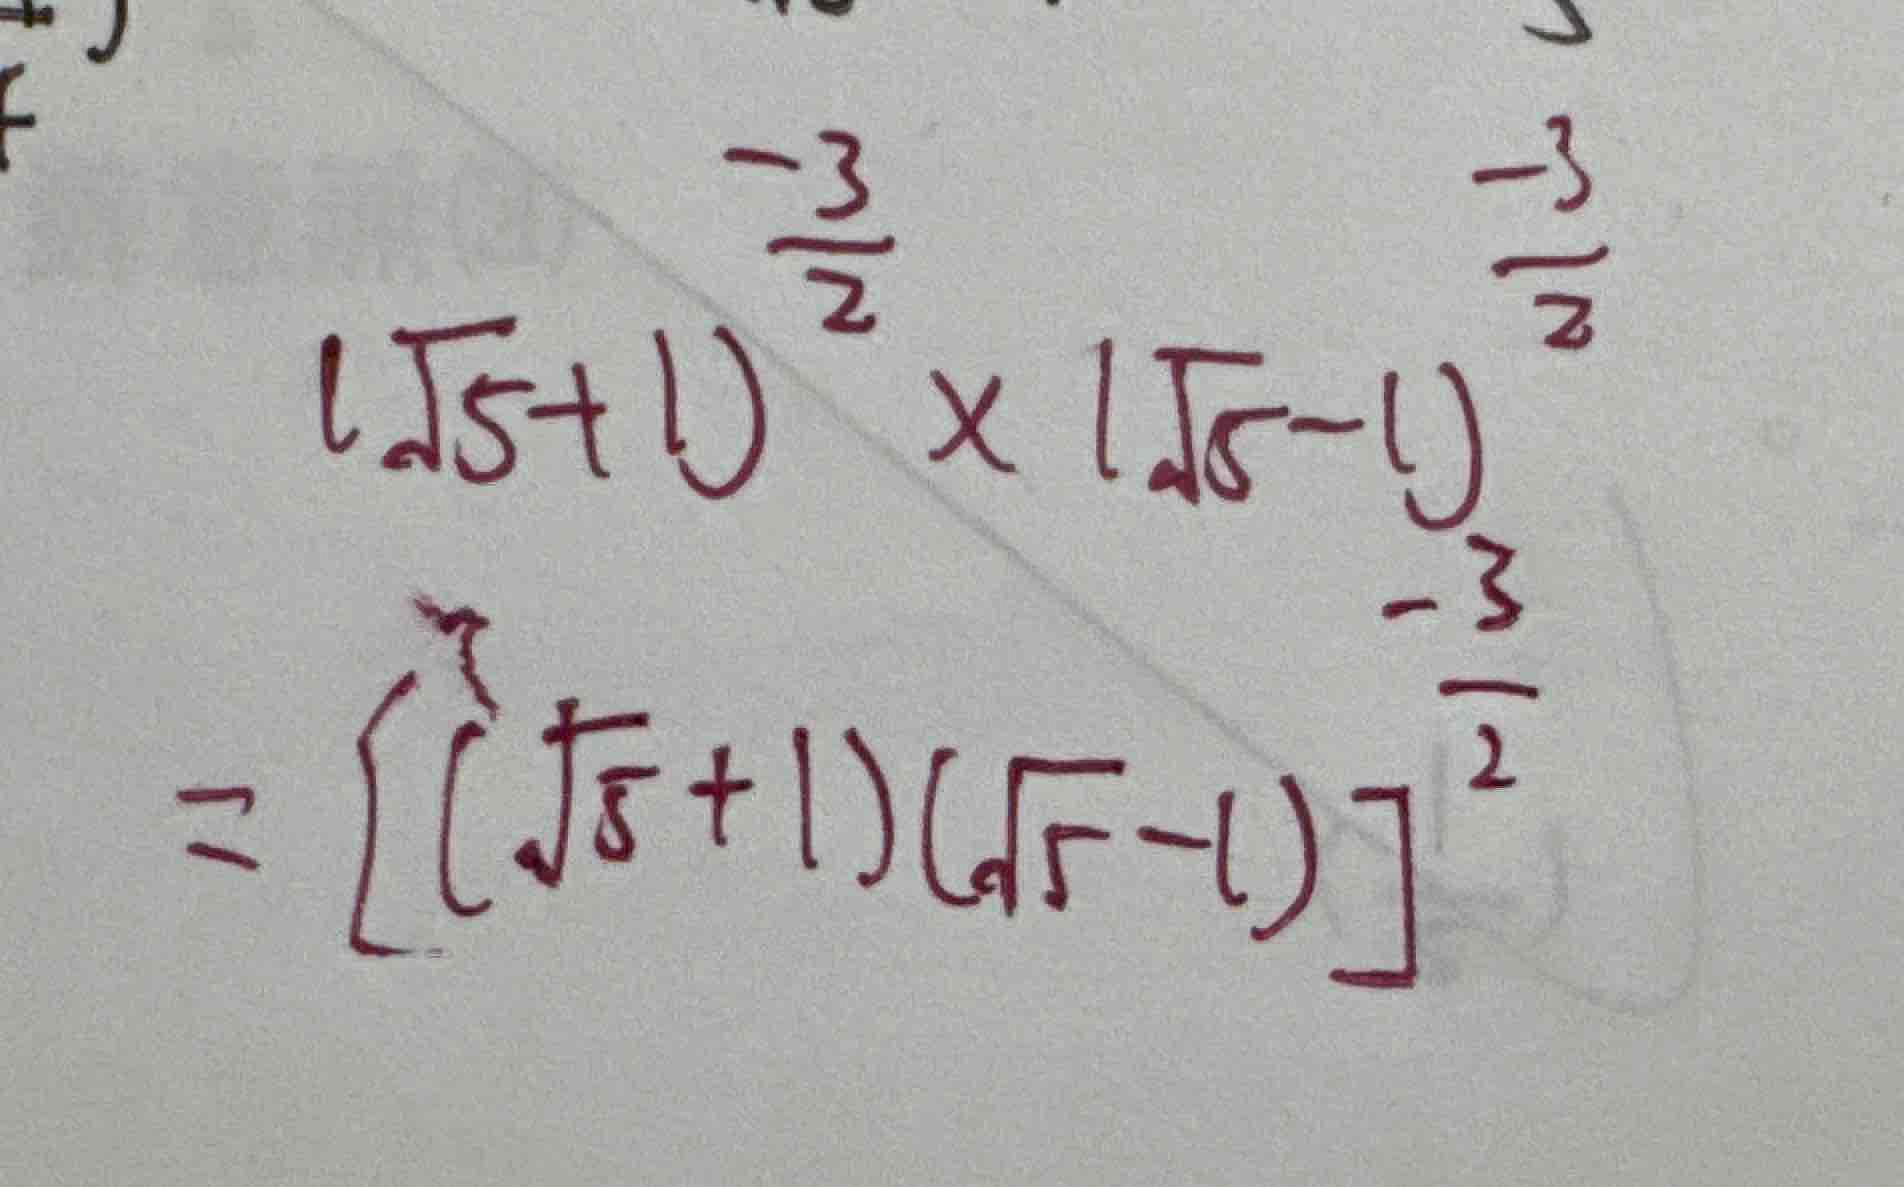 (√5+1)^(-3/2) × (√5-1)^(-3/2)
= [(√5+1)(√5-1)]^(-3/2)